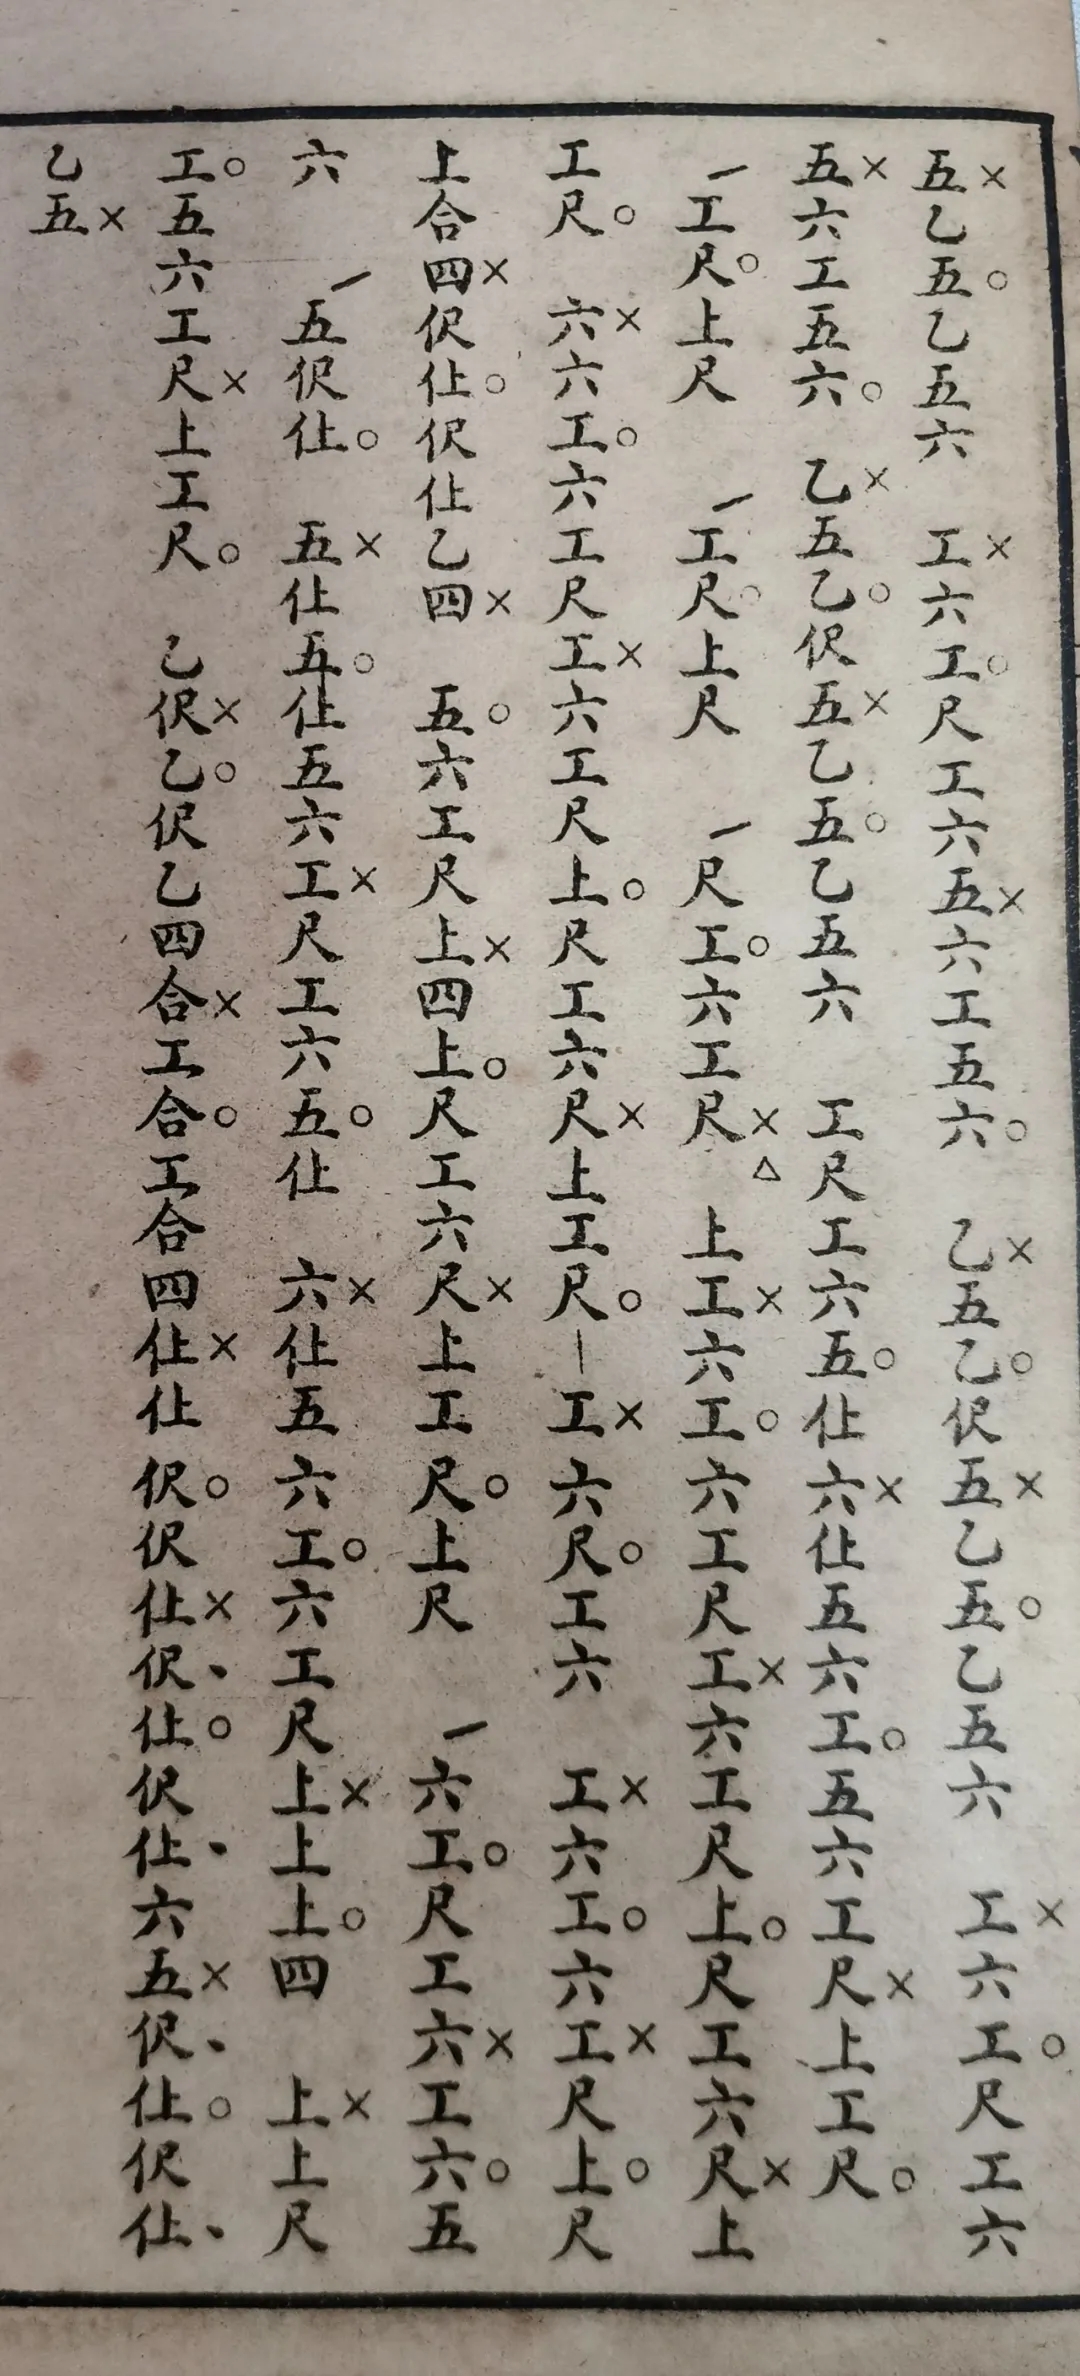 五×乙五○乙五六 工×六工○尺工六五×六工五六○ 乙×五乙○伬五×乙五○乙五六 工×六工○尺工六
五×六工五六○ 乙×五乙○伬五×乙五○乙五六 工尺工六五○仩六×仩五六工○五六工尺×上工尺○
一工尺○上尺 一工尺○上尺 一尺工○六工尺×△ 上工×六工○六工尺工×六工尺上○尺工六尺×上
工尺○ 六×六工○六工尺工×六工尺上○尺工六尺×上工尺○｜工×六尺○工六 工×六工○六工×尺上○尺
上合四×伬仩○伬仩乙四× 五○六工尺上×四上○尺工六尺×上工尺○上尺 一六工○尺工六×工六○五
六 一五伬仩○ 五×仩五○仩五六工×尺工六五○仩 六×仩五六工○六工尺上×上上○四 上×上尺
工○五六工尺×上工尺○ 乙伬×乙○伬乙四合×工合○工合四仩×仩伬○伬仩×伬、仩○伬仩、六五×伬、仩○伬仩、
乙五×